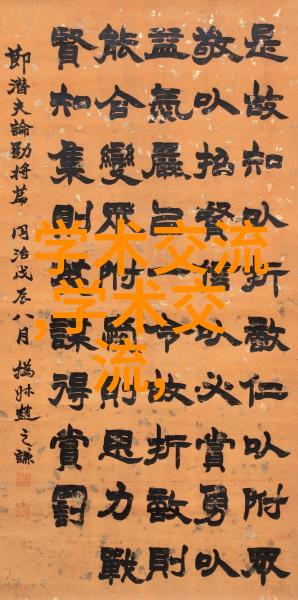 是故知以折敵仁以附眾
敬以招賢信以必賞勇以
益氣嚴以一令故折敵則
能合變眾附則思力戰
賢知集則英謀得賞罰
節潛夫論勸將篇 同治戊辰八月 撝叔趙之謙
学术交流
,学术交
流,